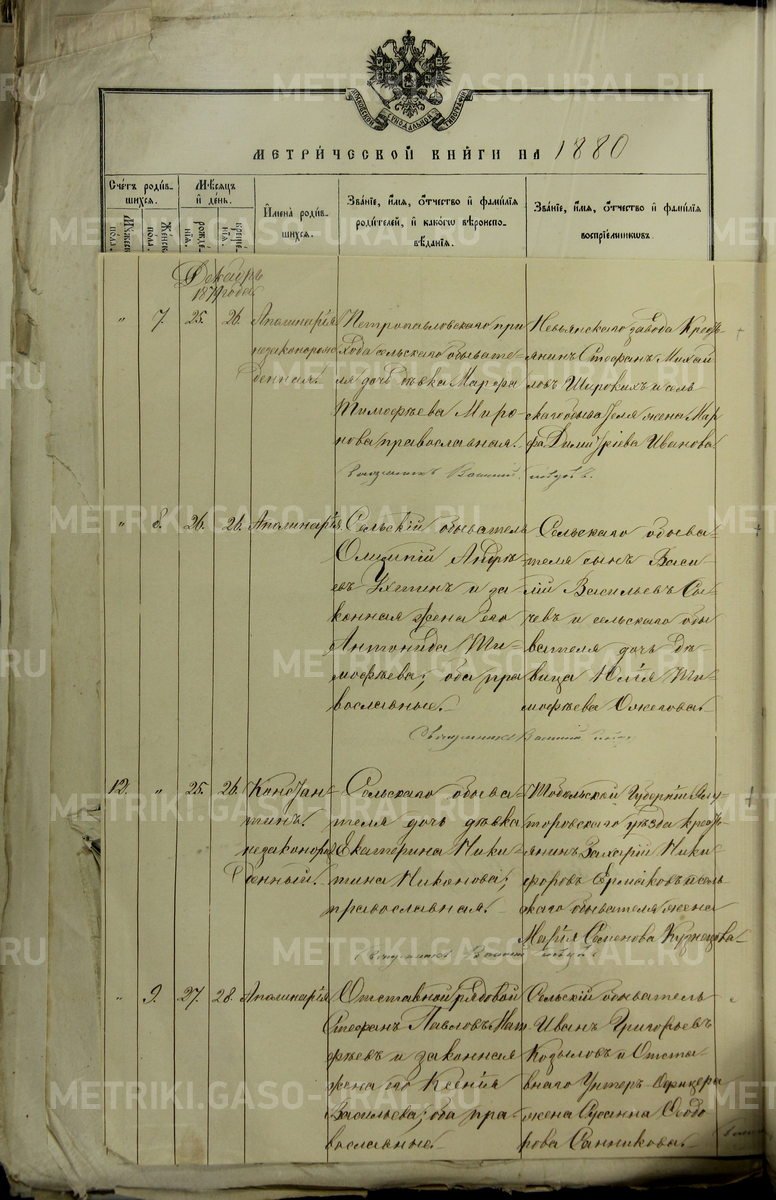 МЕТРИЧЕСКОЙ КНИГИ НА 1880
Счетъ родив-
шихся.
Мужеск. пол.
Женск. пол.
Мѣсяцъ
и день.
рожде-
нія.
креще-
нія.
Имена родив-
шихся.
Званіе, имя, отчество и фамилія
родителей, и какого вѣроиспо-
вѣданія.
Званіе, имя, отчество и фамилія
воспріемниковъ.
Декабрь
1879 года.
" 7. 25. 26.
Аполинарія
незаконорож
денная.
Петропавловскаго при
хода сельскаго обывате-
ля дочь дѣвка Марфа
Тимофѣева Миро-
нова православная.
Невьянскаго завода Кресть
янинъ Стефанъ Михай
ловъ Широкихъ и сель
скаго обывателя жена Мар
фа Димитріева Иванова.
" 8. 26. 26.
Аполинарія
Сельскій обыватель
Олимпій Андре-
евъ Ухтинъ и за-
конная жена его
Антонида Ти-
мофѣева; оба пра
вославные.
Сельскаго обыва-
теля сынъ Васи-
лій Васильевъ Сы-
чевъ и сельскаго обы
вателя дочь дѣ-
вица Юлія Ти-
мофѣева Ожегова.
12. " 25. 26.
Констан-
тинъ
незаконорож
денный.
Сельскаго обыва-
теля дочь дѣвка
Екатерина Ники-
тина Никонова;
православная.
Тобольской Губерніи Ялу
торовскаго уѣзда кресть
янинъ Захарій Ники-
форовъ Ермаковъ и сель
скаго обывателя жена
Марія Семенова Кузнецова
" 9. 27. 28.
Аполинарія
Отставной рядовой
Стефанъ Павловъ Мат-
фѣевъ и законная
жена его Ксенія
Васильева; оба пра-
вославные.
Сельскій обыватель
Иванъ Григорьевъ
Козыловъ и Отста-
вного Унтеръ-Офицера
жена Сусанна Ѳеодо-
рова Санникова.
METRIKI.GASO-URAL.RU